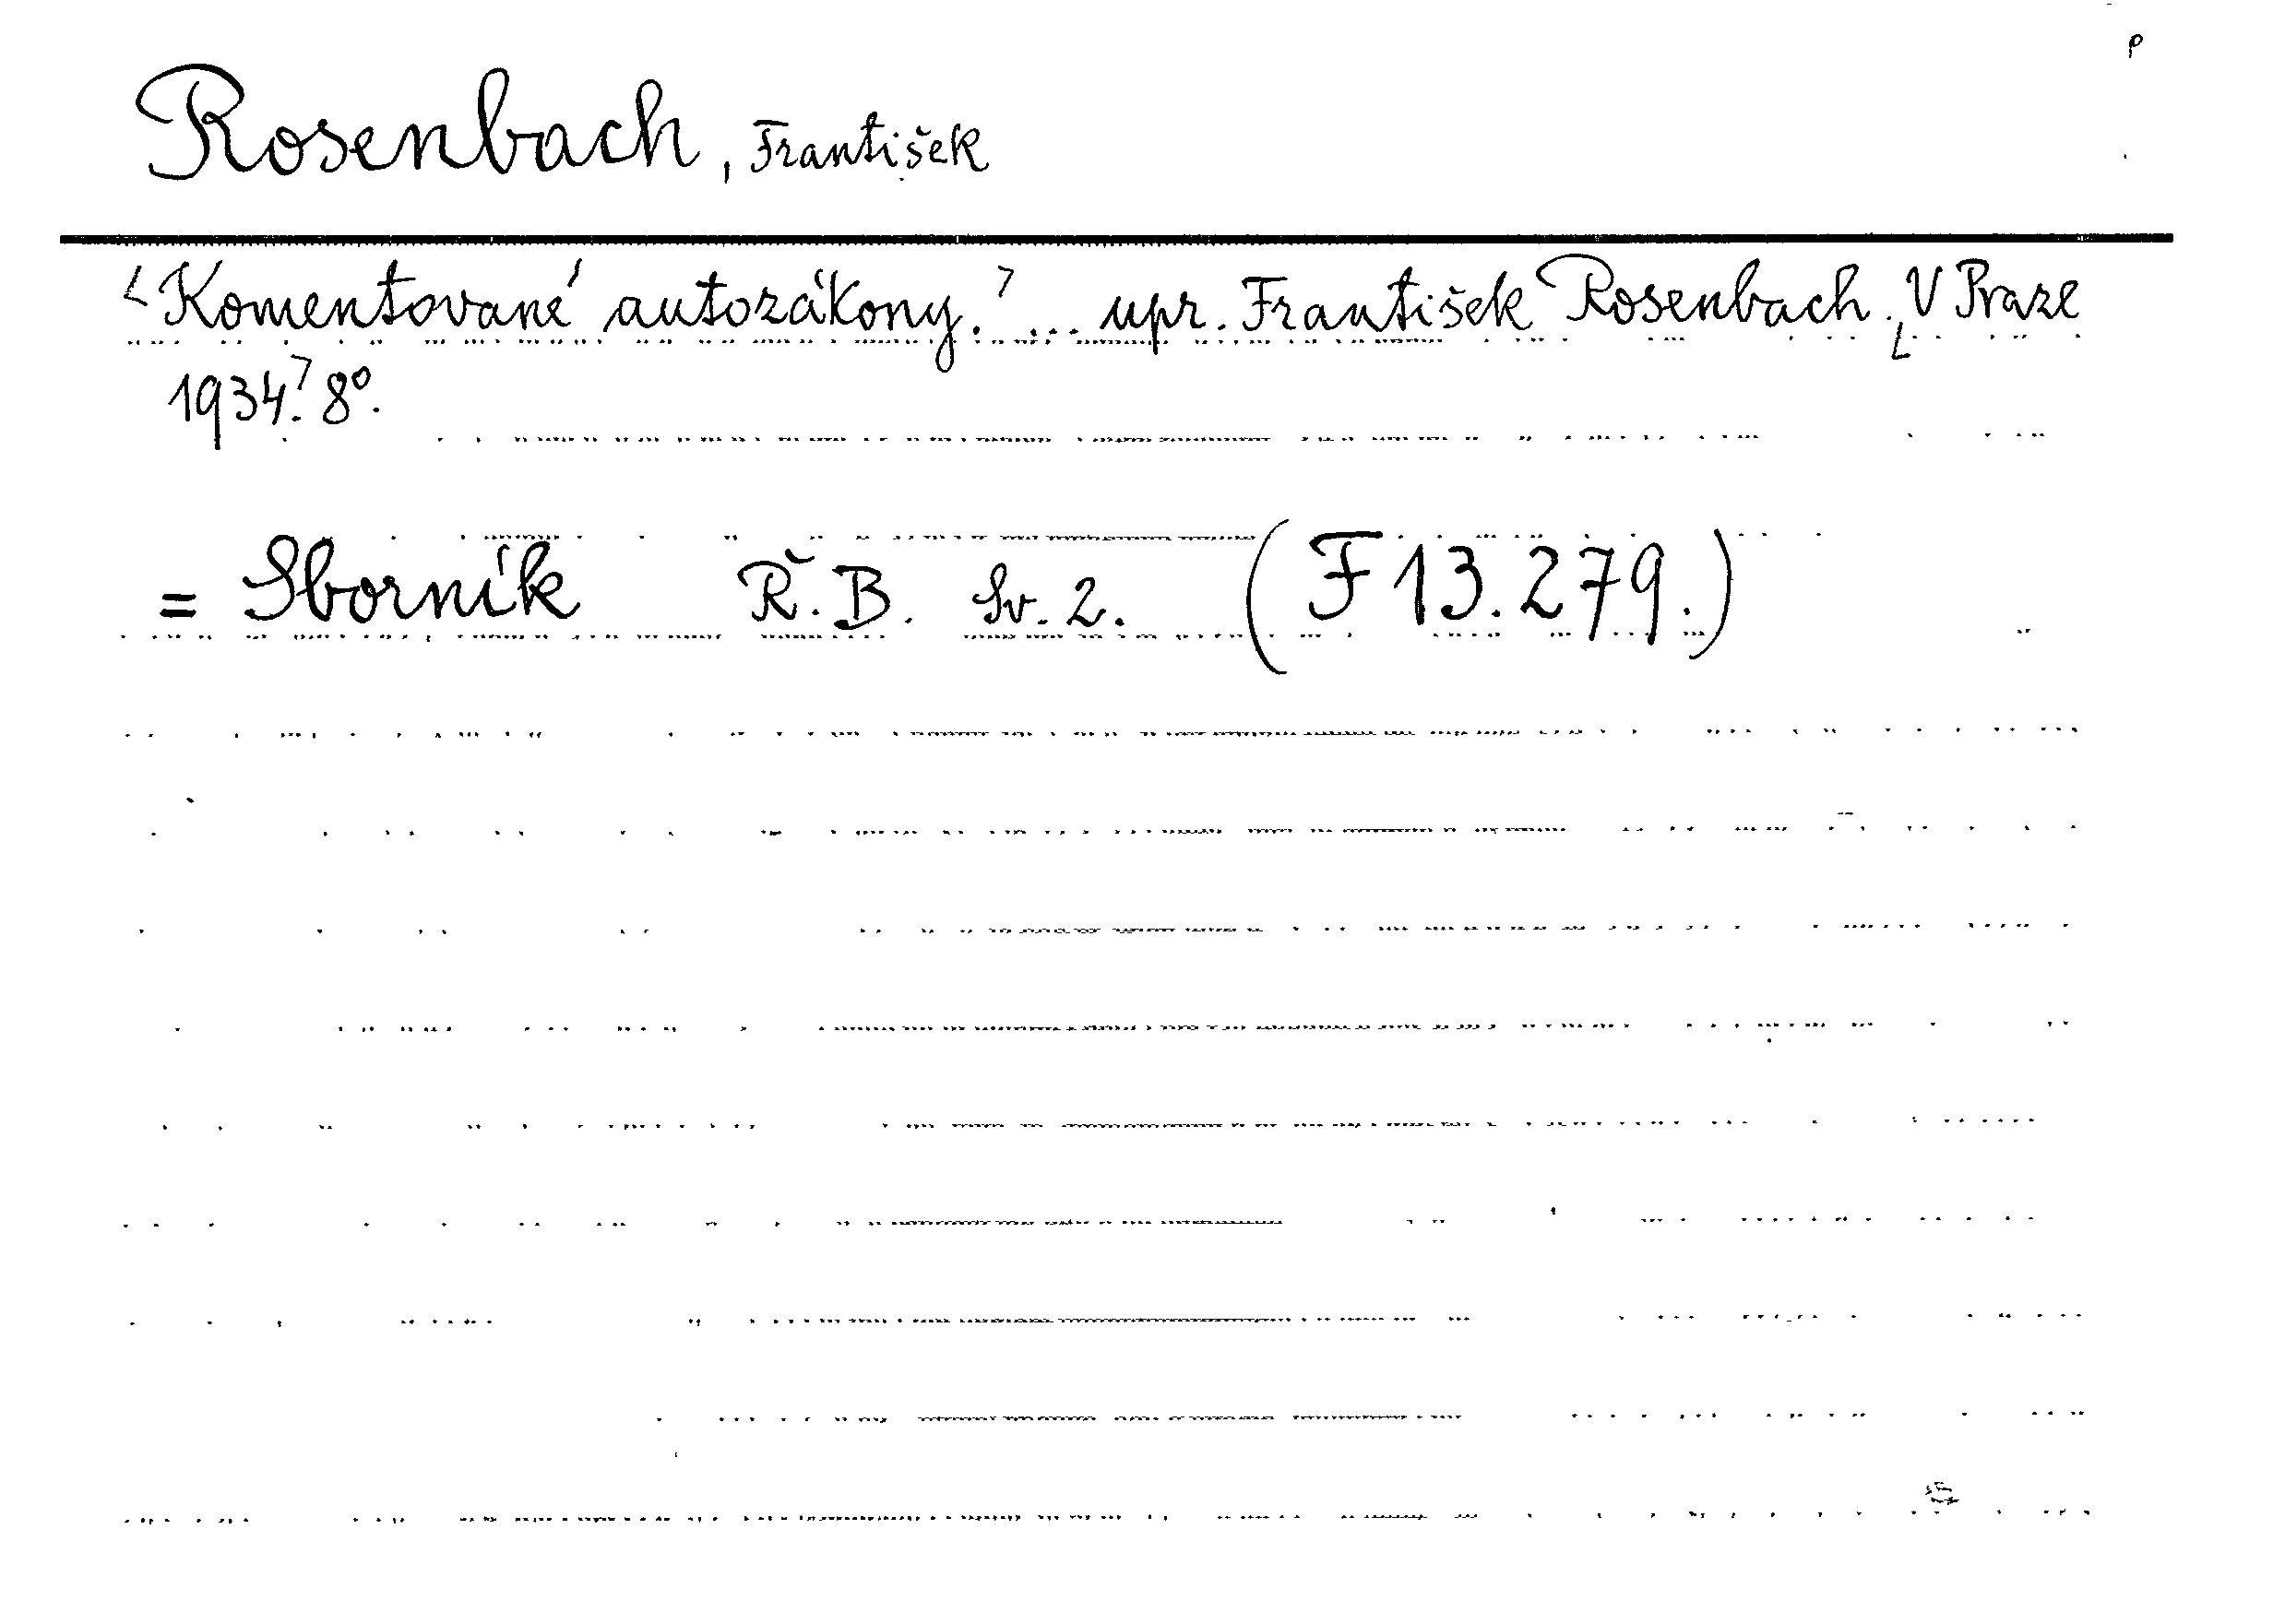 p
Rosenbach, František
<Komentované autozákony.> ... upr. František Rosenbach. <V Praze
1934.> 8°.
= Sborník Ř. B. Sv. 2. (F 13.279.)